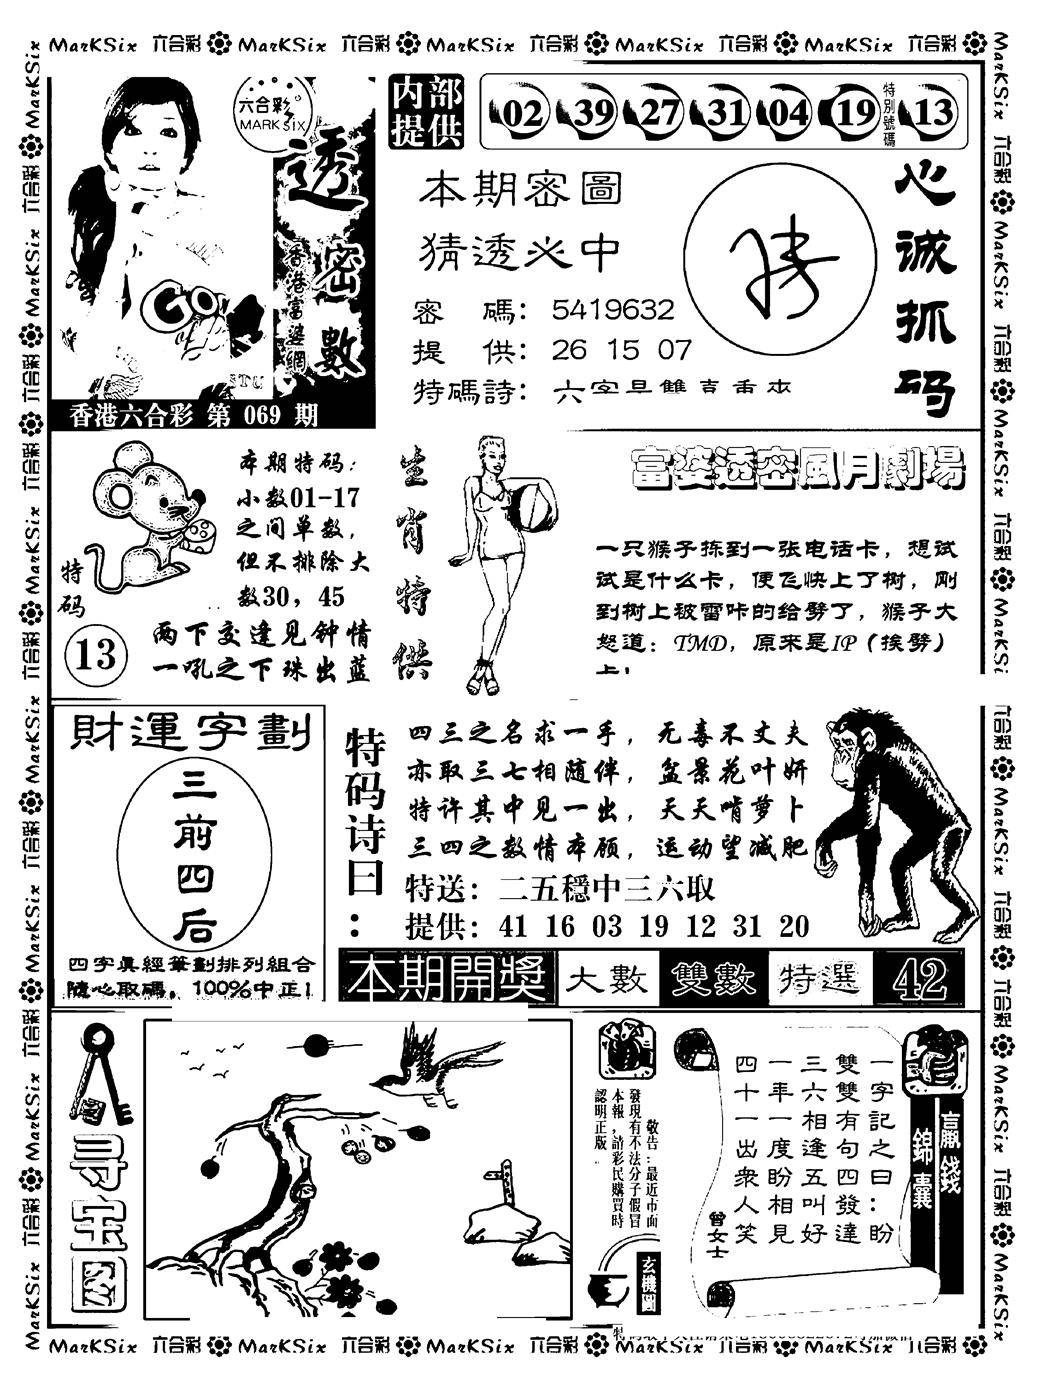 MarKSix 六合彩 MarKSix 六合彩 MarKSix 六合彩 MarKSix 六合彩 MarKSix 六合彩
六合彩
MARK SIX
透密數
香港富婆網
香港六合彩 第 069 期
内部
提供
02 39 27 31 04 19 特別號碼 13
本期密圖
猜透必中
密 碼: 5419632
提 供: 26 15 07
特碼詩:
心诚抓码
本期特码:
小数01-17
之间单数,
但不排除大
数30, 45
特码
13
两下交逢见钟情
一吼之下珠出蓝
生肖特供
富婆透密風月劇場
一只猴子拣到一张电话卡, 想试
试是什么卡, 便飞快上了树, 刚
到树上被雷咔的给劈了, 猴子大
怒道: TMD, 原来是IP (挨劈)
財運字劃
三前四后
四字真經筆劃排列組合
隨心取碼, 100%中正!
特码诗曰:
四三之名求一手, 无毒不丈夫
亦取三七相随伴, 盆景花叶妍
特许其中见一出, 天天啃萝卜
三四之数情本顾, 运动望减肥
特送: 二五穩中三六取
提供: 41 16 03 19 12 31 20
本期開獎 大數 雙數 特選 42
寻宝图
敬告:最近市面
發現有不法分子假冒
本報,請彩民購買時
認明正版
玄機圖
贏錢
錦囊
一字記之曰:盼
雙雙有句四發達
三六相逢五叫好
一年一度盼相見
四十一出衆人笑
曾女士
MarKSix 六合彩 MarKSix 六合彩 MarKSix 六合彩 MarKSix 六合彩 MarKSix 六合彩